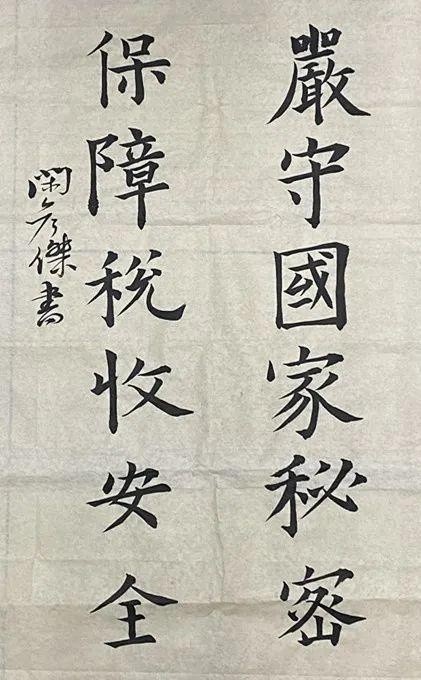 嚴守國家秘密
保障稅收安全
閑彥傑書